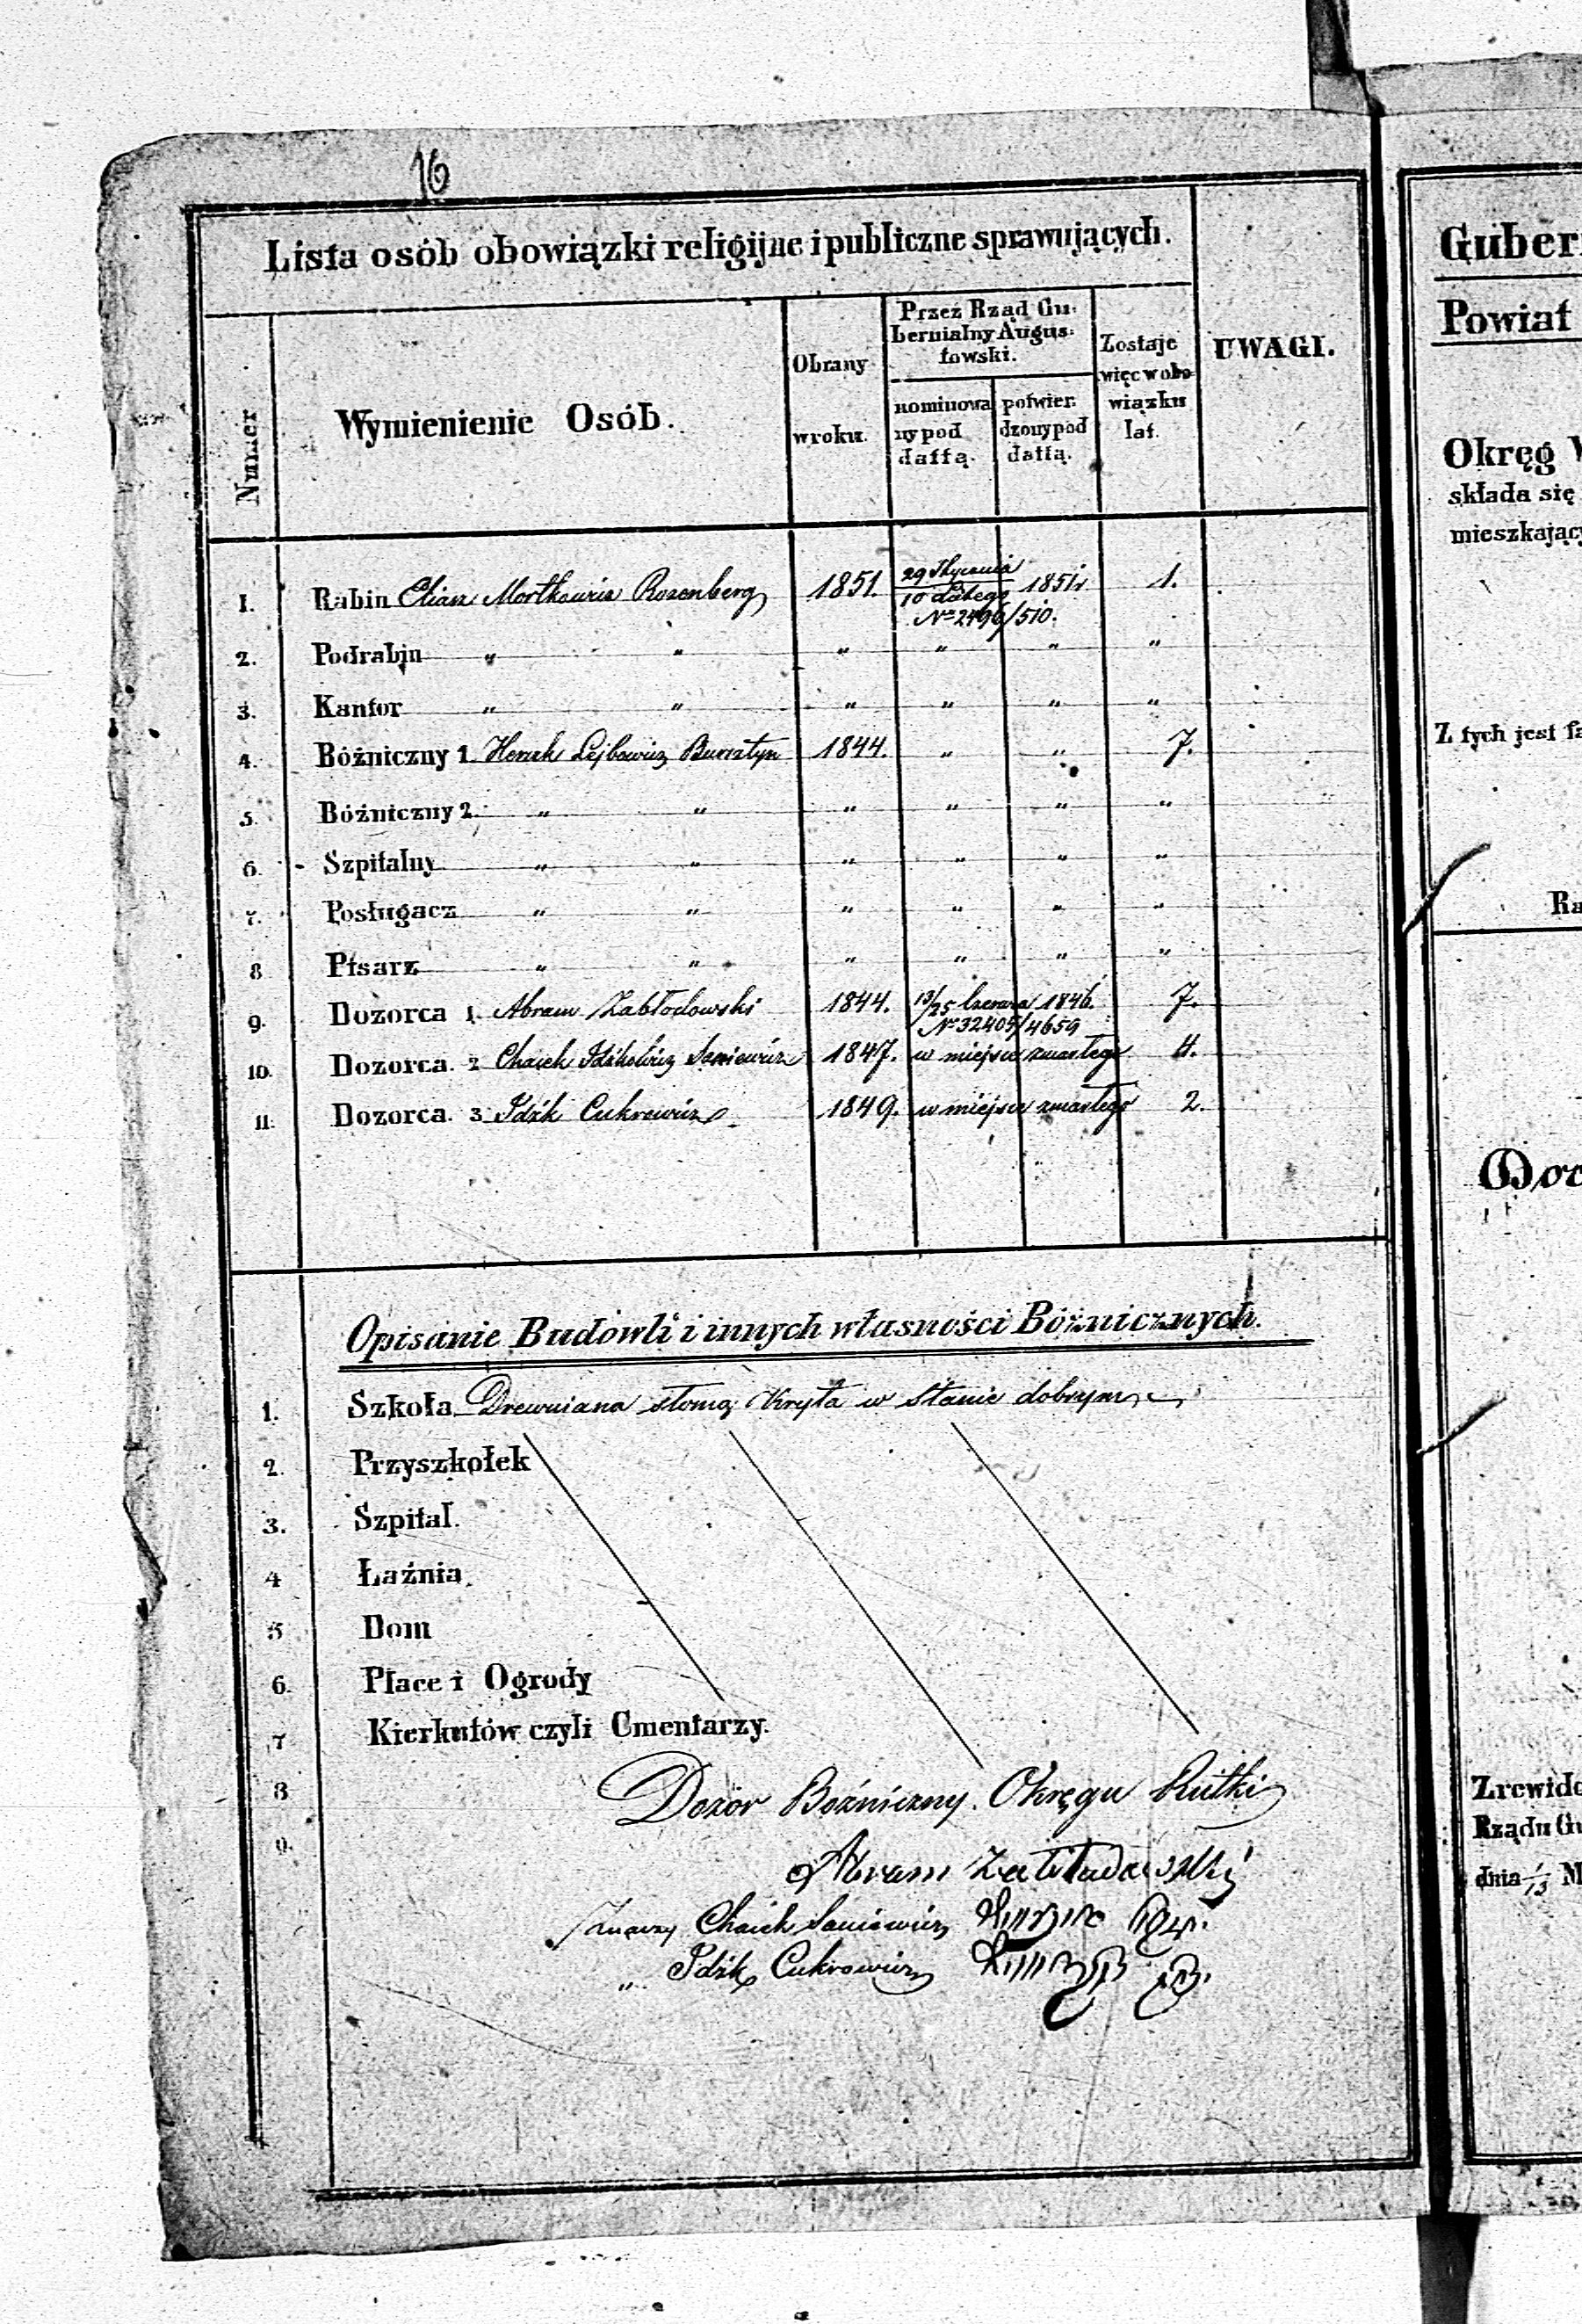 16
Lista osób obowiązki religijne i publiczne sprawujących.
Numer
Wymienienie Osób.
Obrany w roku.
Przez Rząd Gubernialny Augustowski.
nominowany pod dattą.
potwierdzony pod dattą.
Zostaje więc w obowiązku lat.
UWAGI.
1. Rabin Eliasz Mortkowicz Rozenberg 1851. 29 Stycznia / 10 Lutego 1851 r 1.
№ 2496/510.
2. Podrabin " " " " " "
3. Kantor " " " " " "
4. Bóżniczny 1. Herszk Lejbowicz Bursztyn 1844. " " 7.
5. Bóżniczny 2. " " " " " "
6. Szpitalny " " " " " "
7. Posługacz " " " " " "
8 Pisarz " " " " " "
9. Dozorca 1. Abram Zabłodowski 1844. 13/25 Czerwca 1846. 7.
№ 32405/4659
10. Dozorca. 2 Chaiek Idzkowicz Saniewicz 1847. w miejsce zmarłego 4.
11. Dozorca. 3 Idzk Cukrowicz 1849. w miejsce zmarłego 2.
Opisanie Budowli i innych własności Bóżnicznych.
1. Szkoła Drewniana słomą Kryta w stanie dobrym
2. Przyszkołek
3. Szpital.
4 Łaźnia
5 Dom
6. Place i Ogrody
7 Kierkutów czyli Cmentarzy.
8
9.
Dozór Bóżniczny Okręgu Rutki
Abram
Znaczy Chaiek Saniewicz
" Idzk Cukrowicz
Guber
Powiat
Okręg
składa się
mieszkający
Z tych jest
Ra
Zrewido
Rządu Gu
dnia 1/13 M